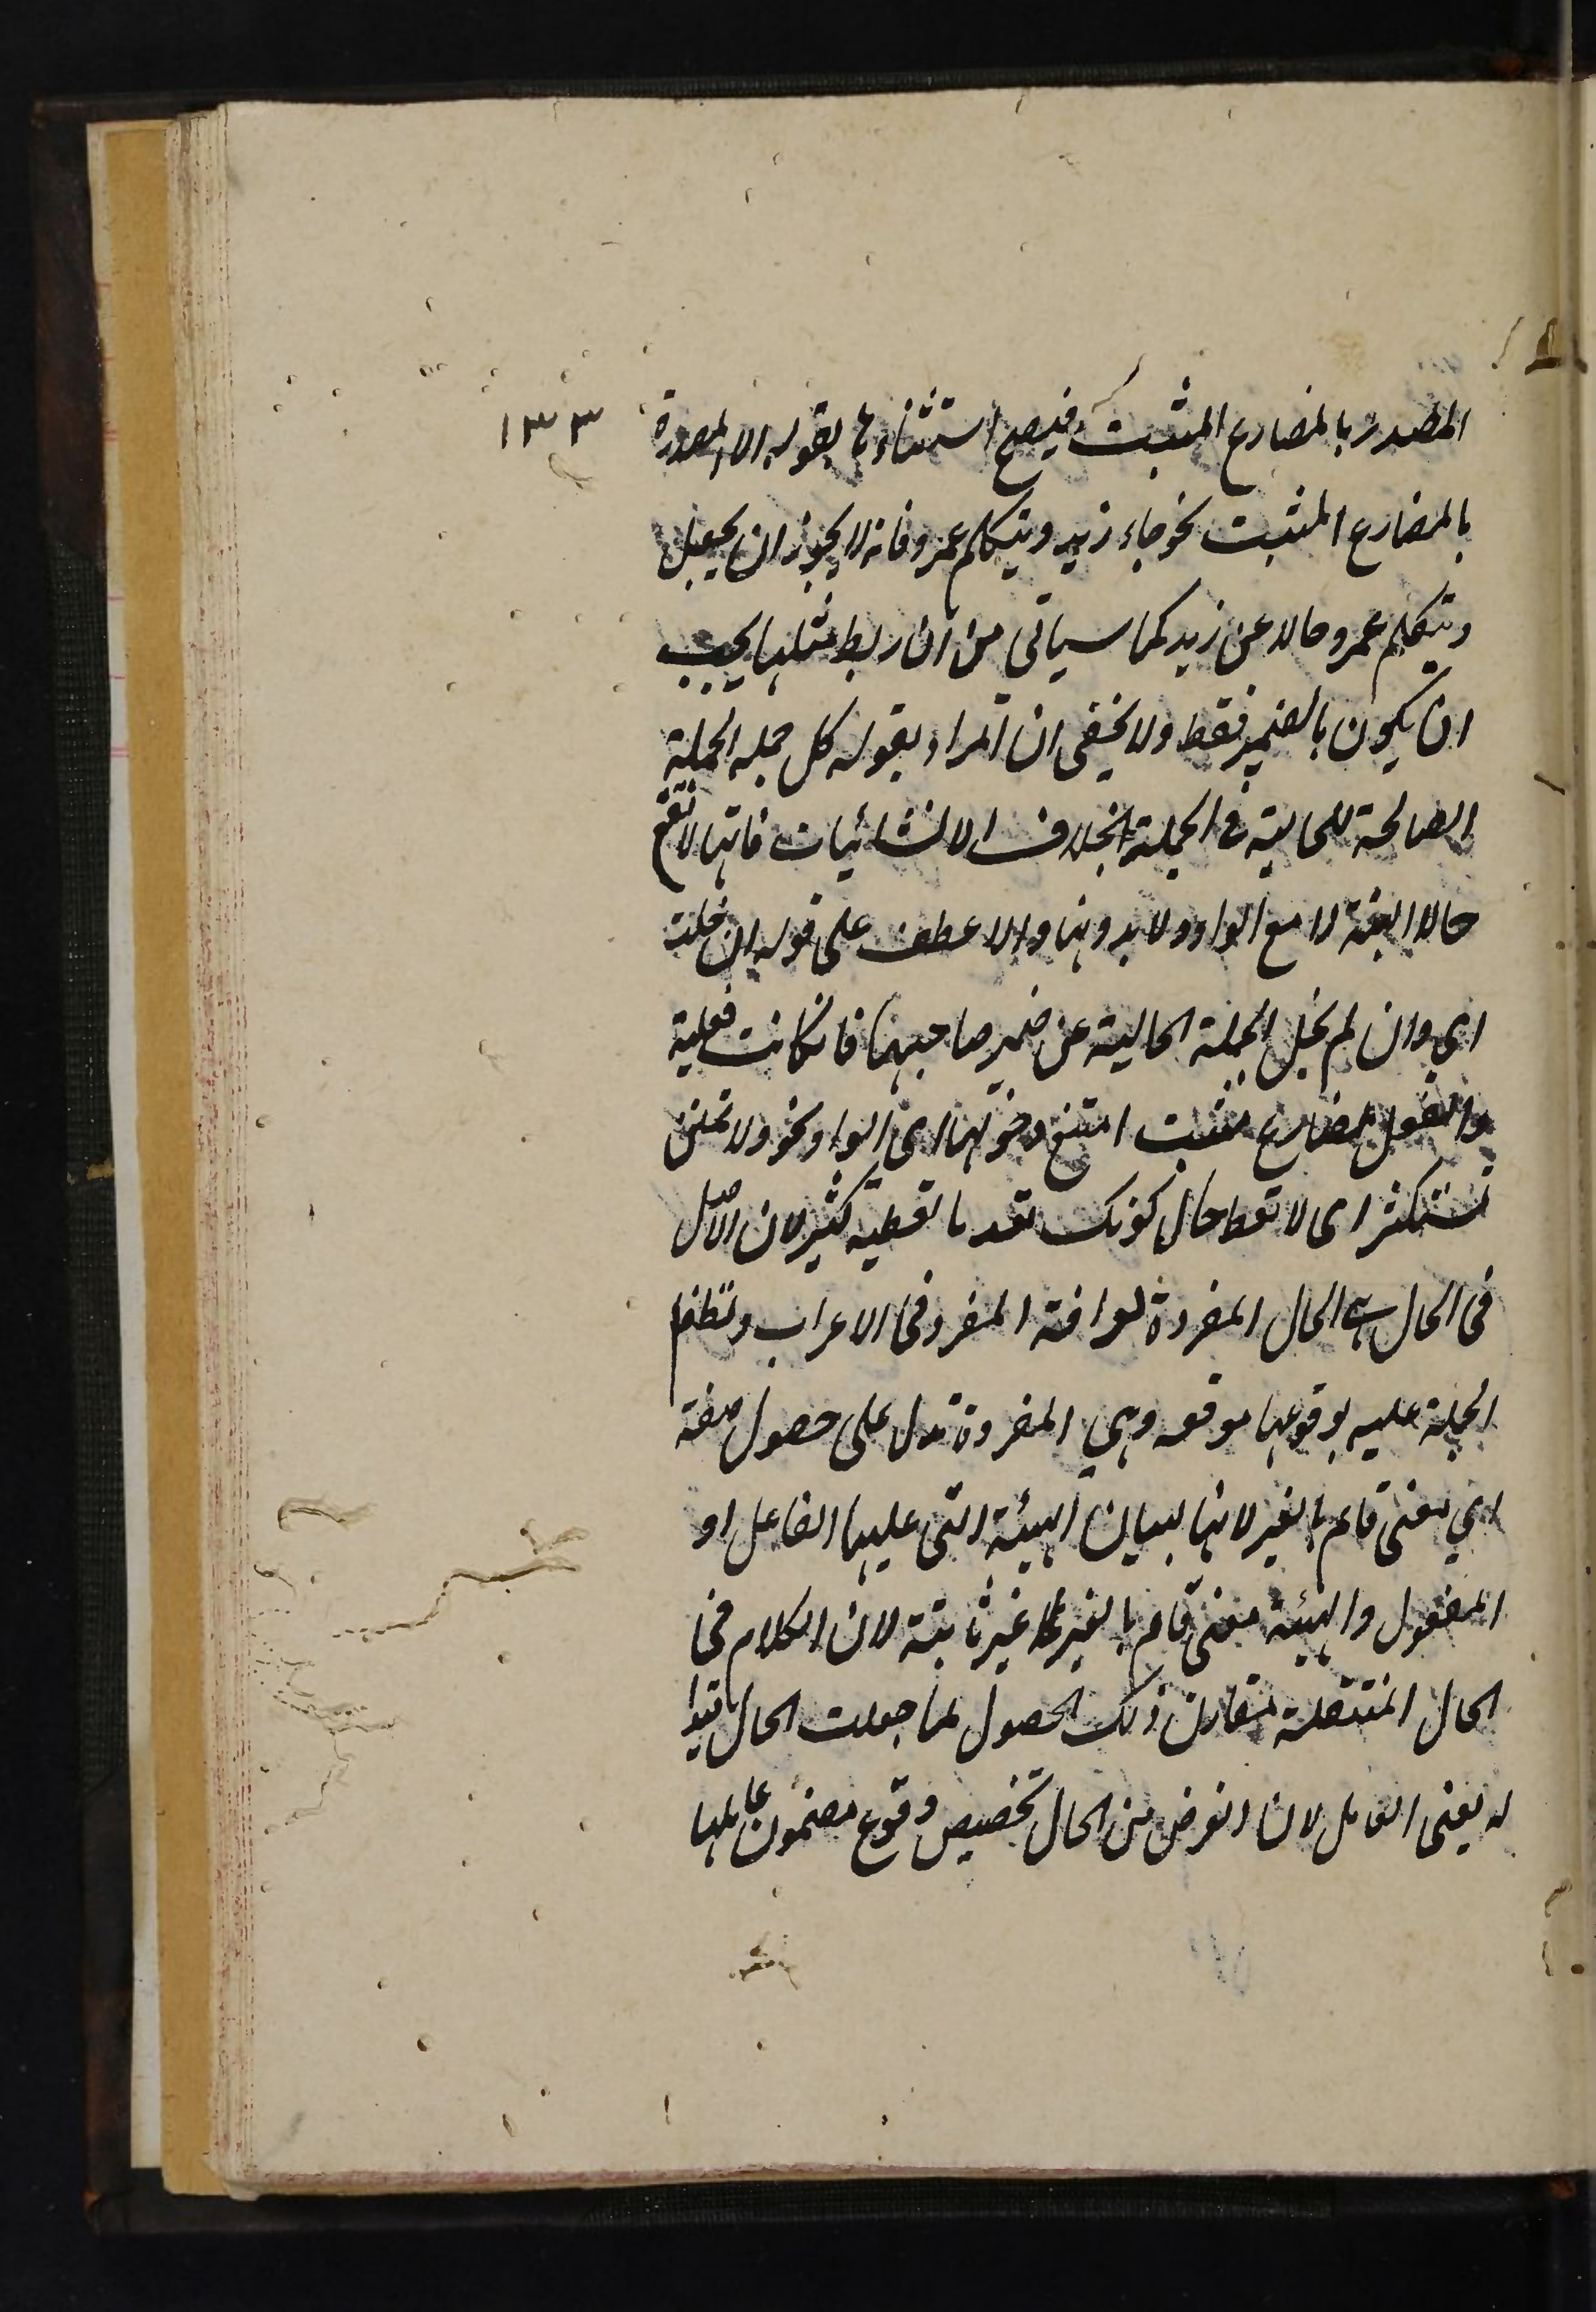 المصدر بالمضارع المثبت فيصح استثناءها بقوله الا المصدرة ١٣٣
بالمضارع المثبت نحو جاء زيد ويتكلم عمرو فانه لا يجوز ان يجعل
ويتكلم عمرو حالا عن زيد كما سياتى من ان ربط مثلها يجب
ان يكون بالضمير فقط ولا يخفى ان المراد بقوله كل جملة الجملة
الصالحة للحالية فى الجملة بخلاف الانشائيات فانها لا تقع
حالا البتة لا مع الواو ولا بدونها والا عطف على قوله ان خلت
اي وان لم تخل الجملة الحالية عن ضمير صاحبها فان كانت فعلية
والفعل مضارع مثبت امتنع دخولها اى الواو نحو ولا تمنن
تستكثر اى لا تعط حال كونك تعد ما تعطيه كثيرا لان الاصل
فى الحال هى الحال المفردة لعراقة المفرد فى الاعراب وتطفل
الجملة عليه بوقوعها موقعه وهي المفردة تدل على حصول صفة
اي معنى قائم بالغير لانها لبيان الهيئة التى عليها الفاعل او
المفعول والهيئة معنى قائم بالغير غير ثابتة لان الكلام فى
الحال المنتقلة مقارن ذلك الحصول لما جعلت الحال قيدا
له يعنى العامل لان الغرض من الحال تخصيص وقوع مضمون عاملها